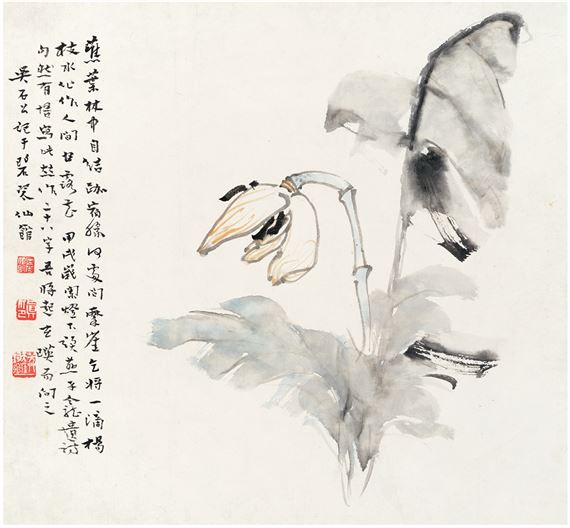 蕉葉林中自結跏緣何處問乞將一滴楊
枝水化作人間甘露花甲戌歲闌燈下讀燕子龕遺詩
然有悟寫此並作二十八字吾將起玄瑛而問之
吳石公記于碧琴仙館